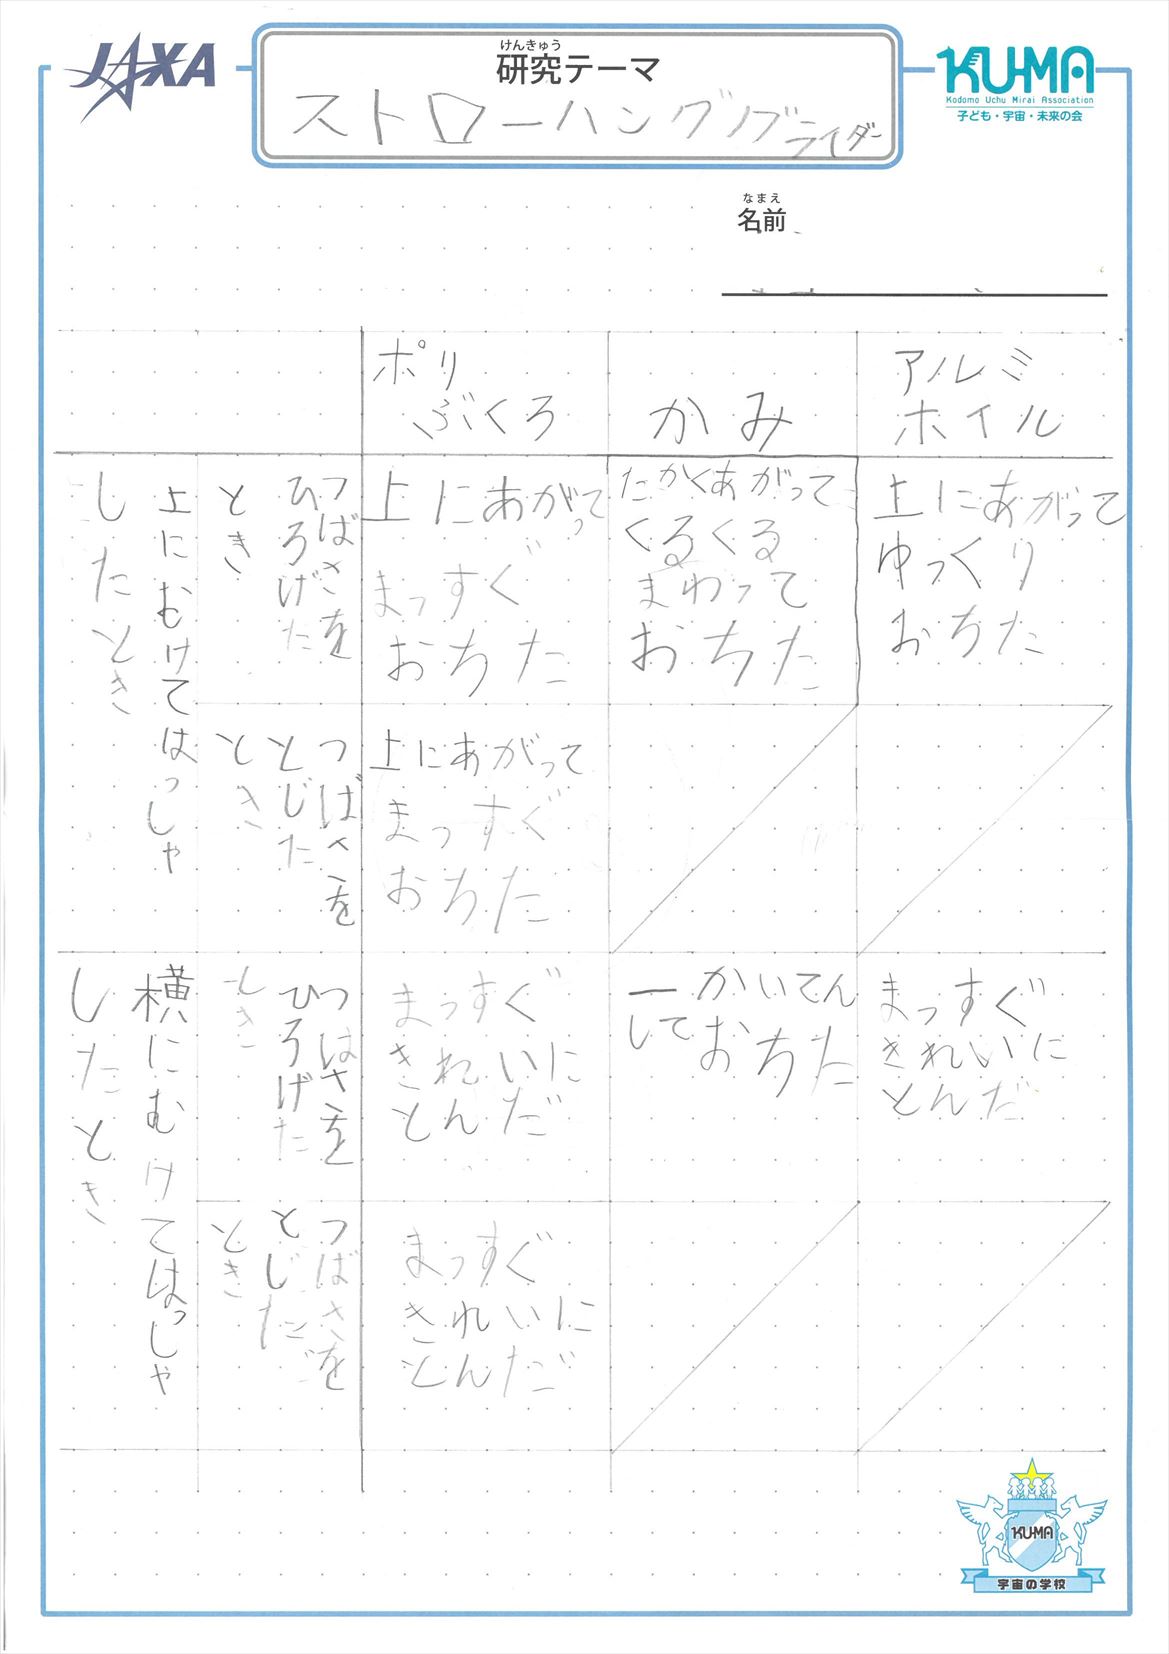 JAXA
けんきゅう
研究テーマ
ストローハンググライダー
KU-MA
Kodomo Uchu Mirai Association
子ども・宇宙・未来の会
なまえ
名前
ポリ
ぶくろ
かみ
アルミ
ホイル
上にむけてはっしゃ
したとき
つばさを
ひろげた
とき
上にあがって
まっすぐ
おちた
たかくあがって
くるくる
まわって
おちた
上にあがって
ゆっくり
おちた
つばさを
とじた
とき
上にあがって
まっすぐ
おちた
横にむけてはっしゃ
したとき
つばさを
ひろげた
とき
まっすぐ
きれいに
とんだ
一かいてん
して
おちた
まっすぐ
きれいに
とんだ
つばさを
とじた
とき
まっすぐ
きれいに
とんだ
KU-MA
宇宙の学校